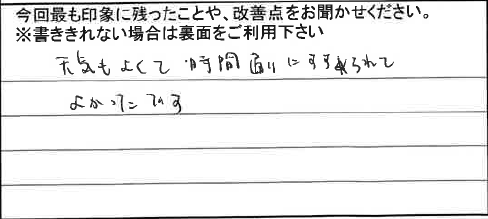 今回最も印象に残ったことや、改善点をお聞かせください。
※書ききれない場合は裏面をご利用下さい
天気もよくて 時間通りにすすめられて
よかったです